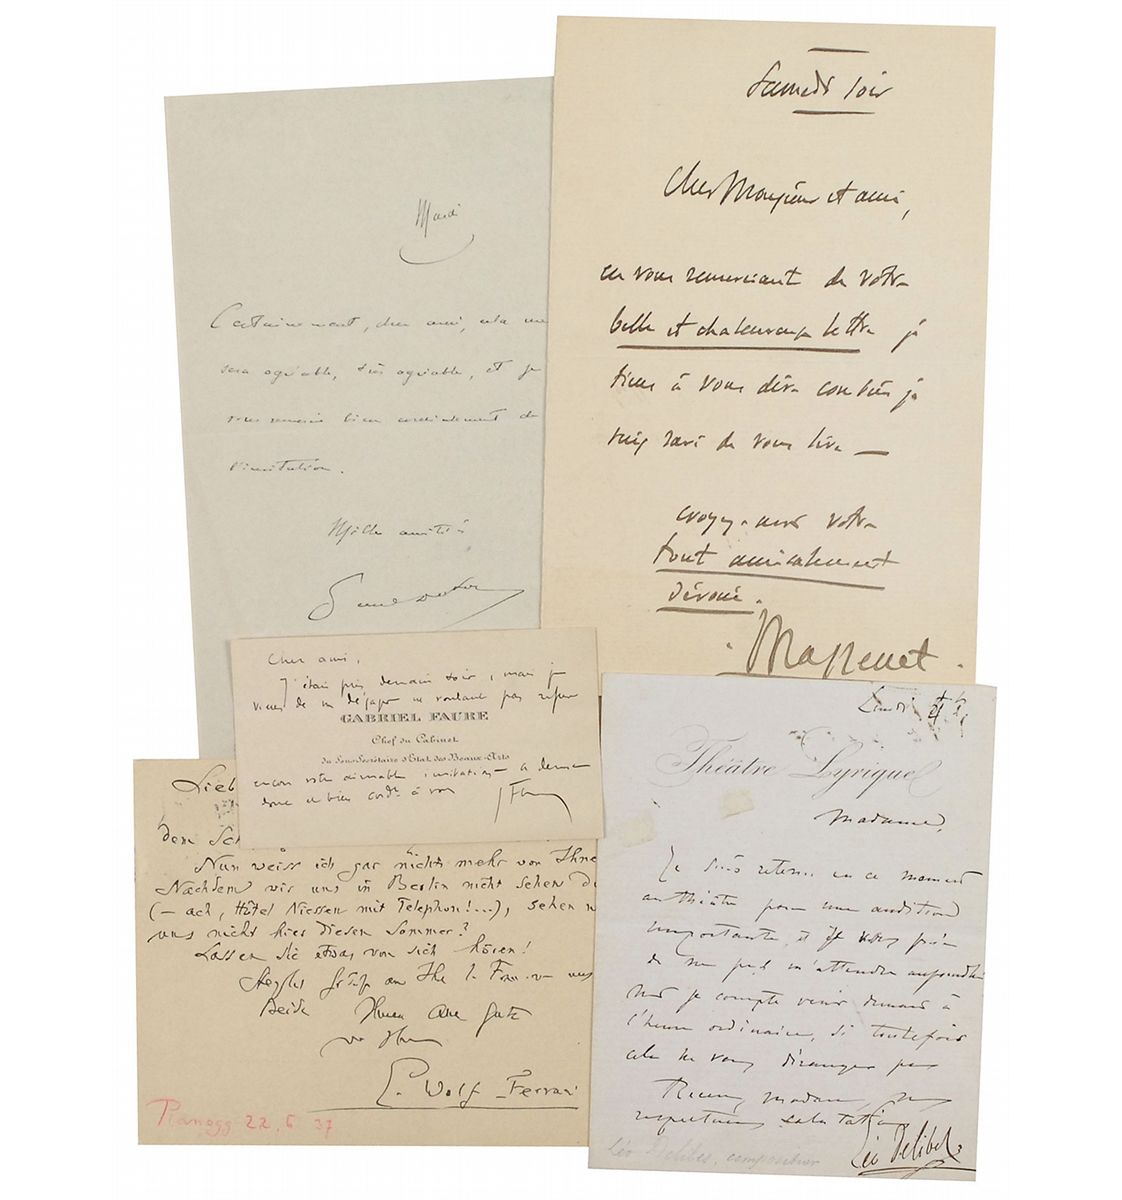 Mardi
Certainement, cher ami, cela me
sera agréable, très agréable, et je
vous remercie bien cordialement de
l'invitation.
Mille amitiés
Samedi soir
Cher Monsieur et ami,
en vous remerciant de votre
belle et chaleureuse lettre je
tiens à vous dire combien je
suis ravi de vous lire —
croyez-moi votre
tout amicalement
dévoué.
Massenet
Cher ami,
J'étais pris demain soir, mais je
viens de me dégager ne voulant pas refuser
GABRIEL FAURE
Chef du Cabinet
du Sous-Secrétaire d'Etat des Beaux-Arts
encore votre aimable invitation – à demain
donc et bien cordt à vous
Lieb
dem Sch
Nun weiss ich gar nichts mehr von Ihne
Nachdem wir uns in Berlin nicht sehen
(– ach, Hôtel Niessen mit Telephon!...), sehen
uns nicht hier diesen Sommer?
Lassen Sie etwas von sich hören!
an Ihre l. Frau von uns
Beide
Ihnen alles Gute
von Ihrem
E. Wolf-Ferrari
Planegg 22. 6 37
Lundi
Théâtre Lyrique
Madame,
Je suis retenu en ce moment
au théâtre pour une audition
importante, et je vous prie
de ne pas m'attendre aujourd'hui
mais je compte venir demain à
l'heure ordinaire, si toutefois
cela ne vous dérange pas
Recevez, madame, mes
respectueuses salutations
Léo Delibes
Léo Delibes, compositeur